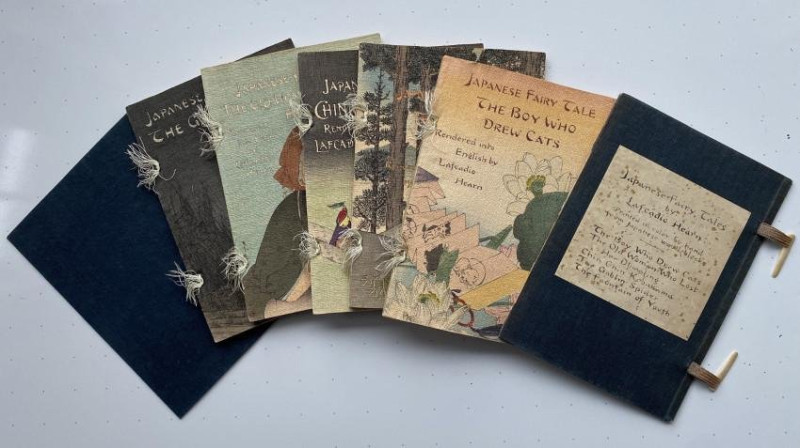 JAPANESE
THE
JAPANESE
JAPAN
CHIN
REND
LAFCAD
JAPANESE FAIRY TALE
THE BOY WHO
DREW CATS
Rendered into
English by
Lafcadio
Hearn
Japanese Fairy Tales
by
Lafcadio Hearn
Printed in color by hand
from Japanese wood blocks
The Boy Who Drew Cats
The Old Woman Who Lost
Her Dumpling
Chin Chin Kobakama
The Goblin Spider
The Fountain of Youth